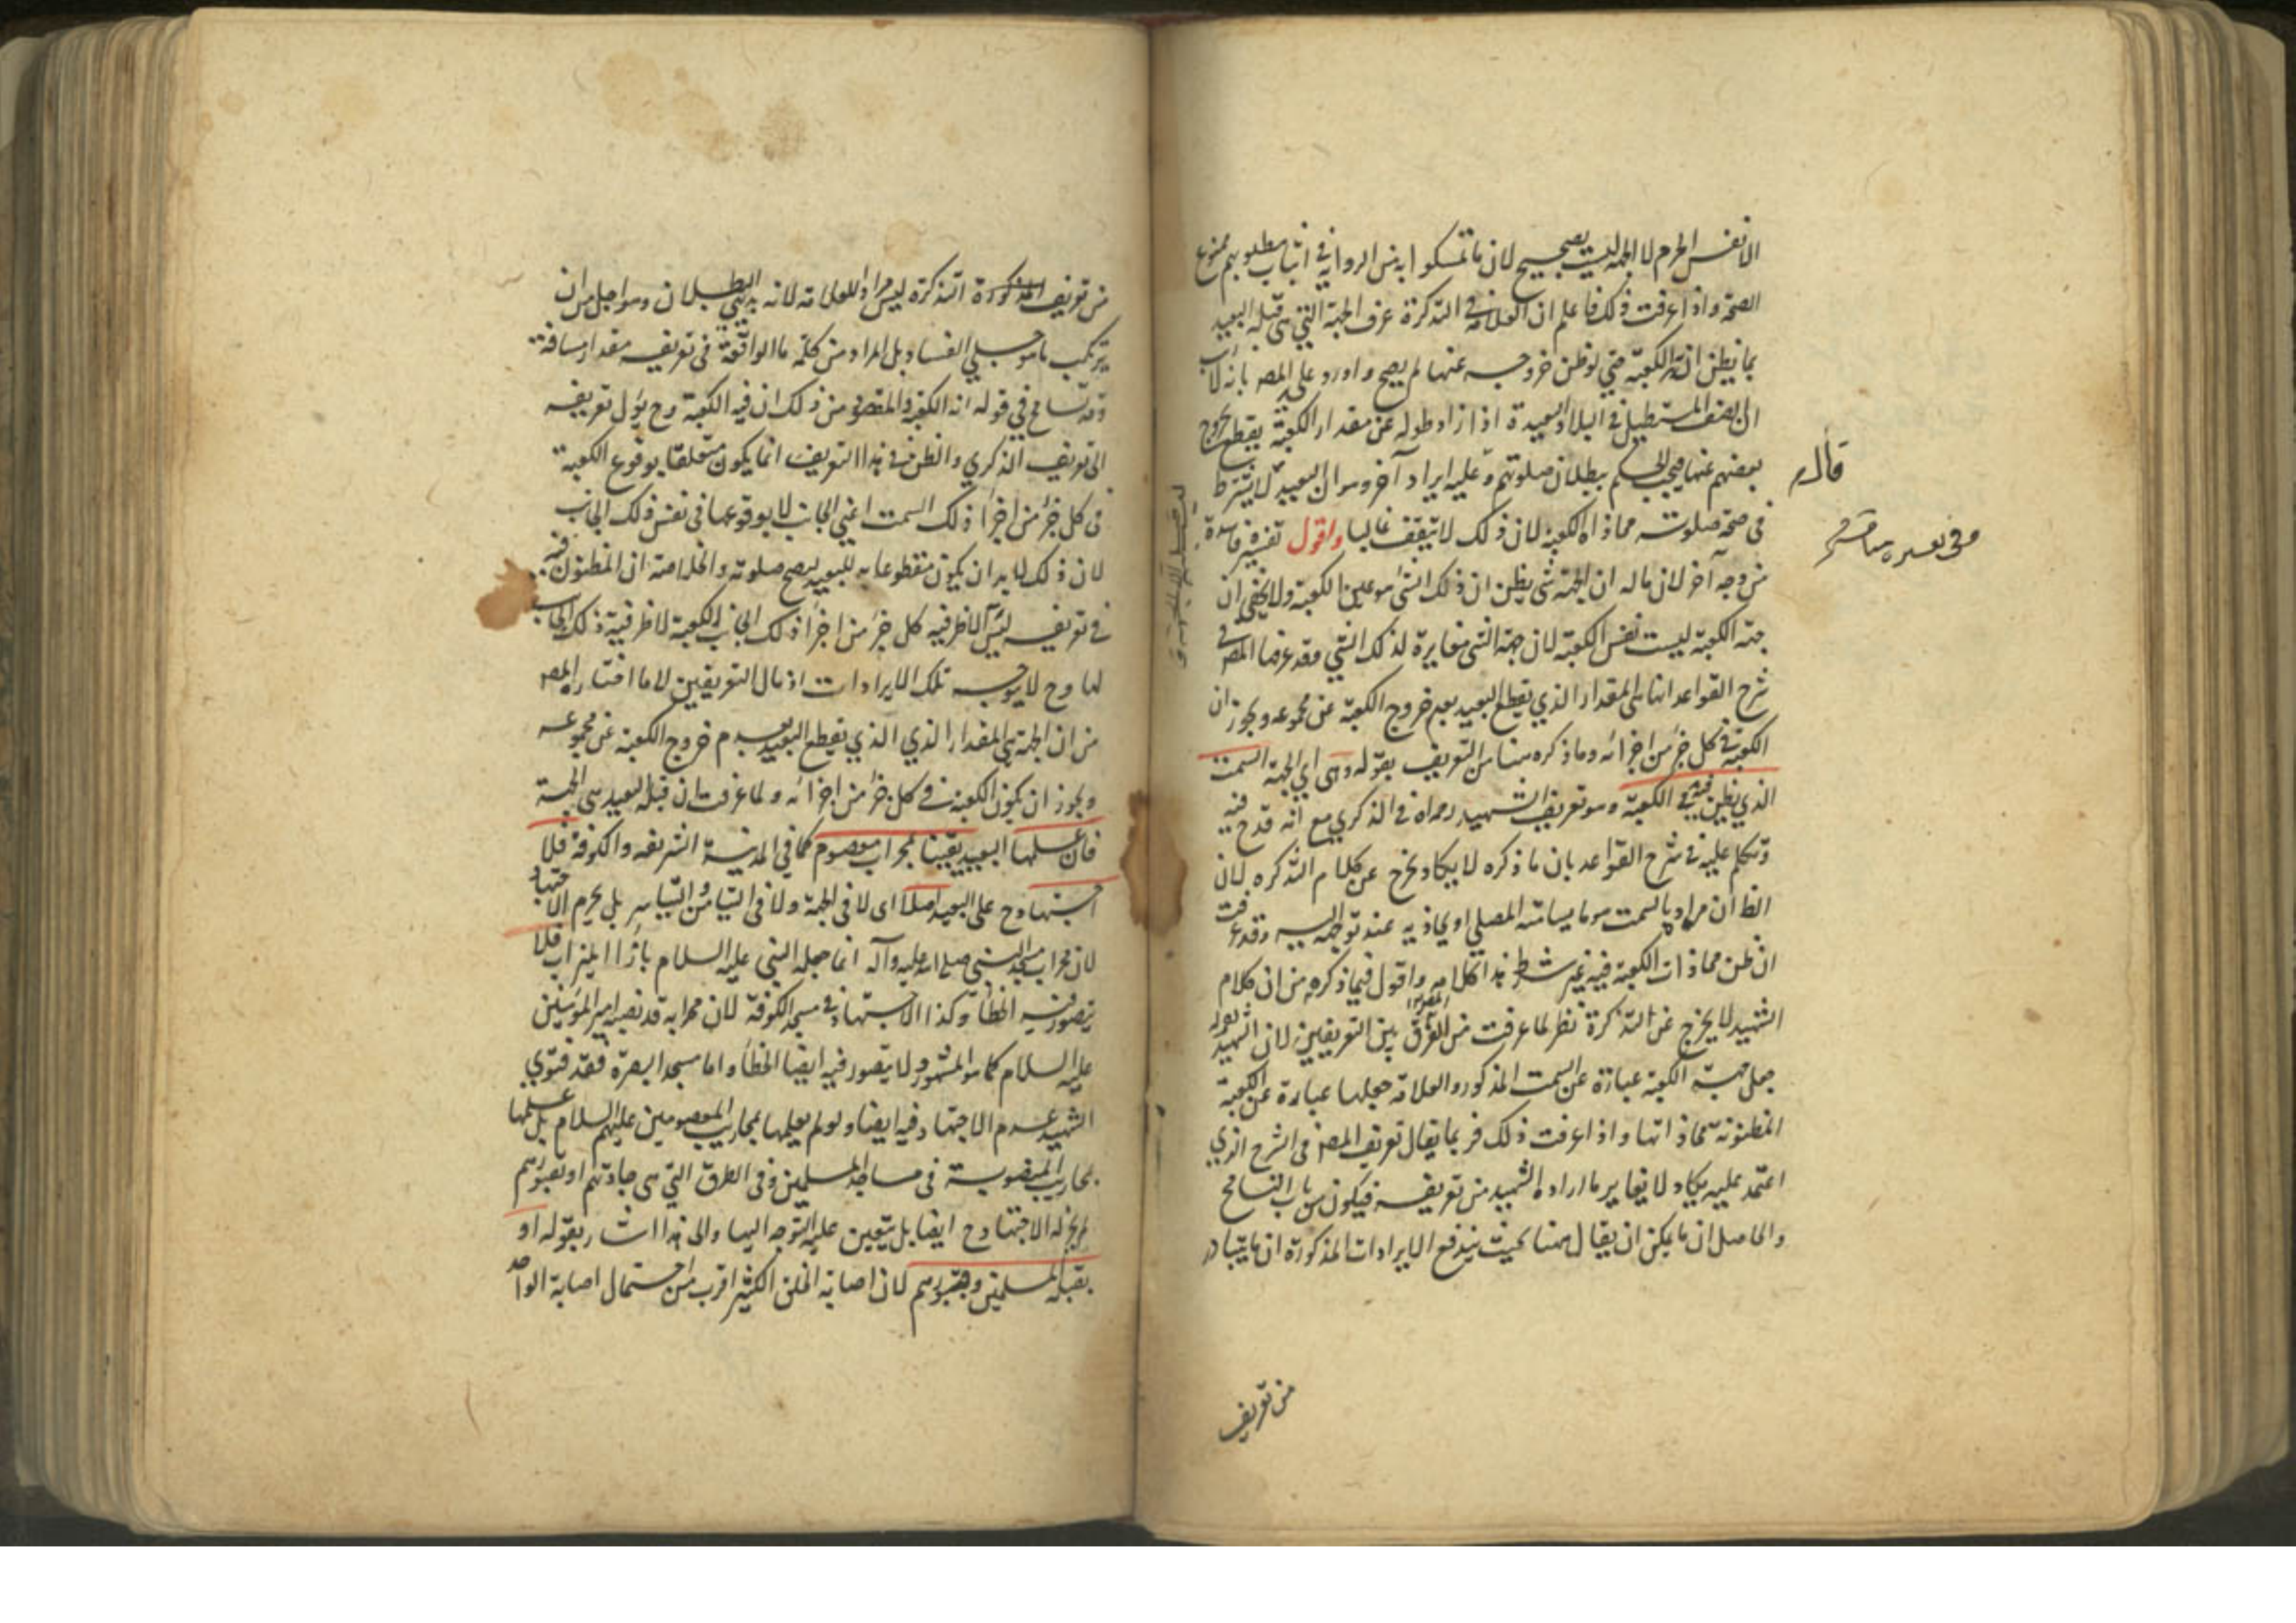 الا نفس الحرم لا الجهة ليست بصحيح لان ما تمسكوا به من الرواية في اثبات مطلوبهم ممنوع
الصحة واذا عرفت ذلك فاعلم ان العلامة في التذكرة عرف الجهة التي هي قبلة البعيد
بما يظن انه الكعبة حتى لو ظن خروجه عنها لم يصح واورد علي المصـ بانه
ان الصف المستطيل في البلاد البعيدة اذا زاد طوله عن مقدار الكعبة يقطع بخروج
بعضهم عنها فيجب الحكم ببطلان صلوتهم وعليه ايراد آخر وهو ان البعيد لا يشترط
في صحة صلوته محاذاه الكعبة لان ذلك لا يتفق غالبا واقول تفسيره فاسدة
من وجه آخر لان ماله ان الجهة شي يظن ان ذلك الشي هو عين الكعبة ولا يخفى ان
جهة الكعبة ليست نفس الكعبة لان جهة الشي مغايرة لذلك الشي وقد عرفها المصـ في
شرح القواعد انها هي المقدار الذي يقطع البعيد بعدم خروج الكعبة عن مجموعه ويجوز ان
الكعبة في كل جزء من اجزائه وما ذكره هنا من التعريف بقوله وهي اي الجهة السمت
الذي يظن فيه الكعبة وهو تعريف الشهيد رحمه الله في الذكري مع انه قدح فيه
وتكلم عليه في شرح القواعد بان ما ذكره لا يكاد يخرج عن كلام التذكره لان
الظ ان مراده بالسمت هو ما يسامته المصلي او يحاذيه عند توجهه اليه وقد عرفت
ان ظن محاذات الكعبة فيه غير شرط هذا كلامه واقول فيما ذكره من ان كلام
الشهيد لا يخرج عن التذكرة نظر لما عرفت من الفرق بين التعريفين لان الشهيد
جعل جهة الكعبة عبارة عن السمت المذكور والعلامة جعلها عبارة عن الكعبة
المظنونة محاذاتها واذا عرفت ذلك فربما يقال تعريف المصـ في الشرح الذي
اعتمد عليه يكاد لا يغاير ما اراده الشهيد من تعريفه فيكون من باب التسامح
والحاصل ان ما يمكن ان يقال هنا بحيث يندفع الايرادات المذكورة ان ما يتبادر
من تعريف
قال
من تعريف التذكرة ليس مراد للعلامة لانه بديهي البطلان وهو اجل من ان
يرتكب ما هو جلي الفساد بل المراد من كلمة ما الواقعة في تعريفه مقدار مسافة
وقد تسامح في قوله انه الكعبة والمقصود من ذلك ان فيه الكعبة وح يؤل تعريفه
الى تعريف الذكري والظن في هذا التعريف انما يكون متعلقا بوقوع الكعبة
في كل جزء من اجزاء ذلك السمت اعني الجانب لا بوقوعها في نفس ذلك الجانب
لان ذلك لا بد ان يكون مقطوعا به للبعيد ليصح صلوته والخلاصة ان المظنون فيه
في تعريفه ليس الا ظرفية كل جزء من اجزاء ذلك الجانب للكعبة لا ظرفية ذلك الجانب
لها وح لا يتوجه تلك الايرادات اذ مال التعريفين لا ما اختاره المصـ
من ان الجهة هي المقدار الذي الذي يقطع البعيد بعدم خروج الكعبة عن مجموعه
ويجوز ان يكون الكعبة في كل جزء من اجزائه ولما عرفت ان قبلة البعيد هي الجهة
فان علمها البعيد يقينا بمحراب معصوم كما في المدينة الشريفه والكوفة فلا
اجتهاد ح على البعيد اصلا اى لا في الجهة ولا في التيامن والتياسر بل يحرم الاجتهاد
لان محراب مسجد النبي صلى الله عليه وآله انما جعله النبي عليه السلام بازاء الميزاب فلا
يتصور فيه الخطأ وكذا الاجتهاد في مسجد الكوفة لان محرابه قد نصبه امير المؤمنين
عليه السلام كما هو المشهور ولا يتصور فيه ايضا الخطأ واما مسجد البصرة فقد فتوى
الشهيد عدم الاجتهاد فيه ايضا ولو لم يعلمها بمحاريب المعصومين عليهم السلام بل علمها
بمحاريب المنصوبة في مساجد المسلمين وفي الطرق التي هي جادتهم او بقبورهم
لم يجز له الاجتهاد ح ايضا بل يتعين عليه التوجه اليها والى هذا اشار بقوله او
بقبلة المسلمين وقبورهم لان اصابة الخلق الكثير اقرب من احتمال اصابة الواحد